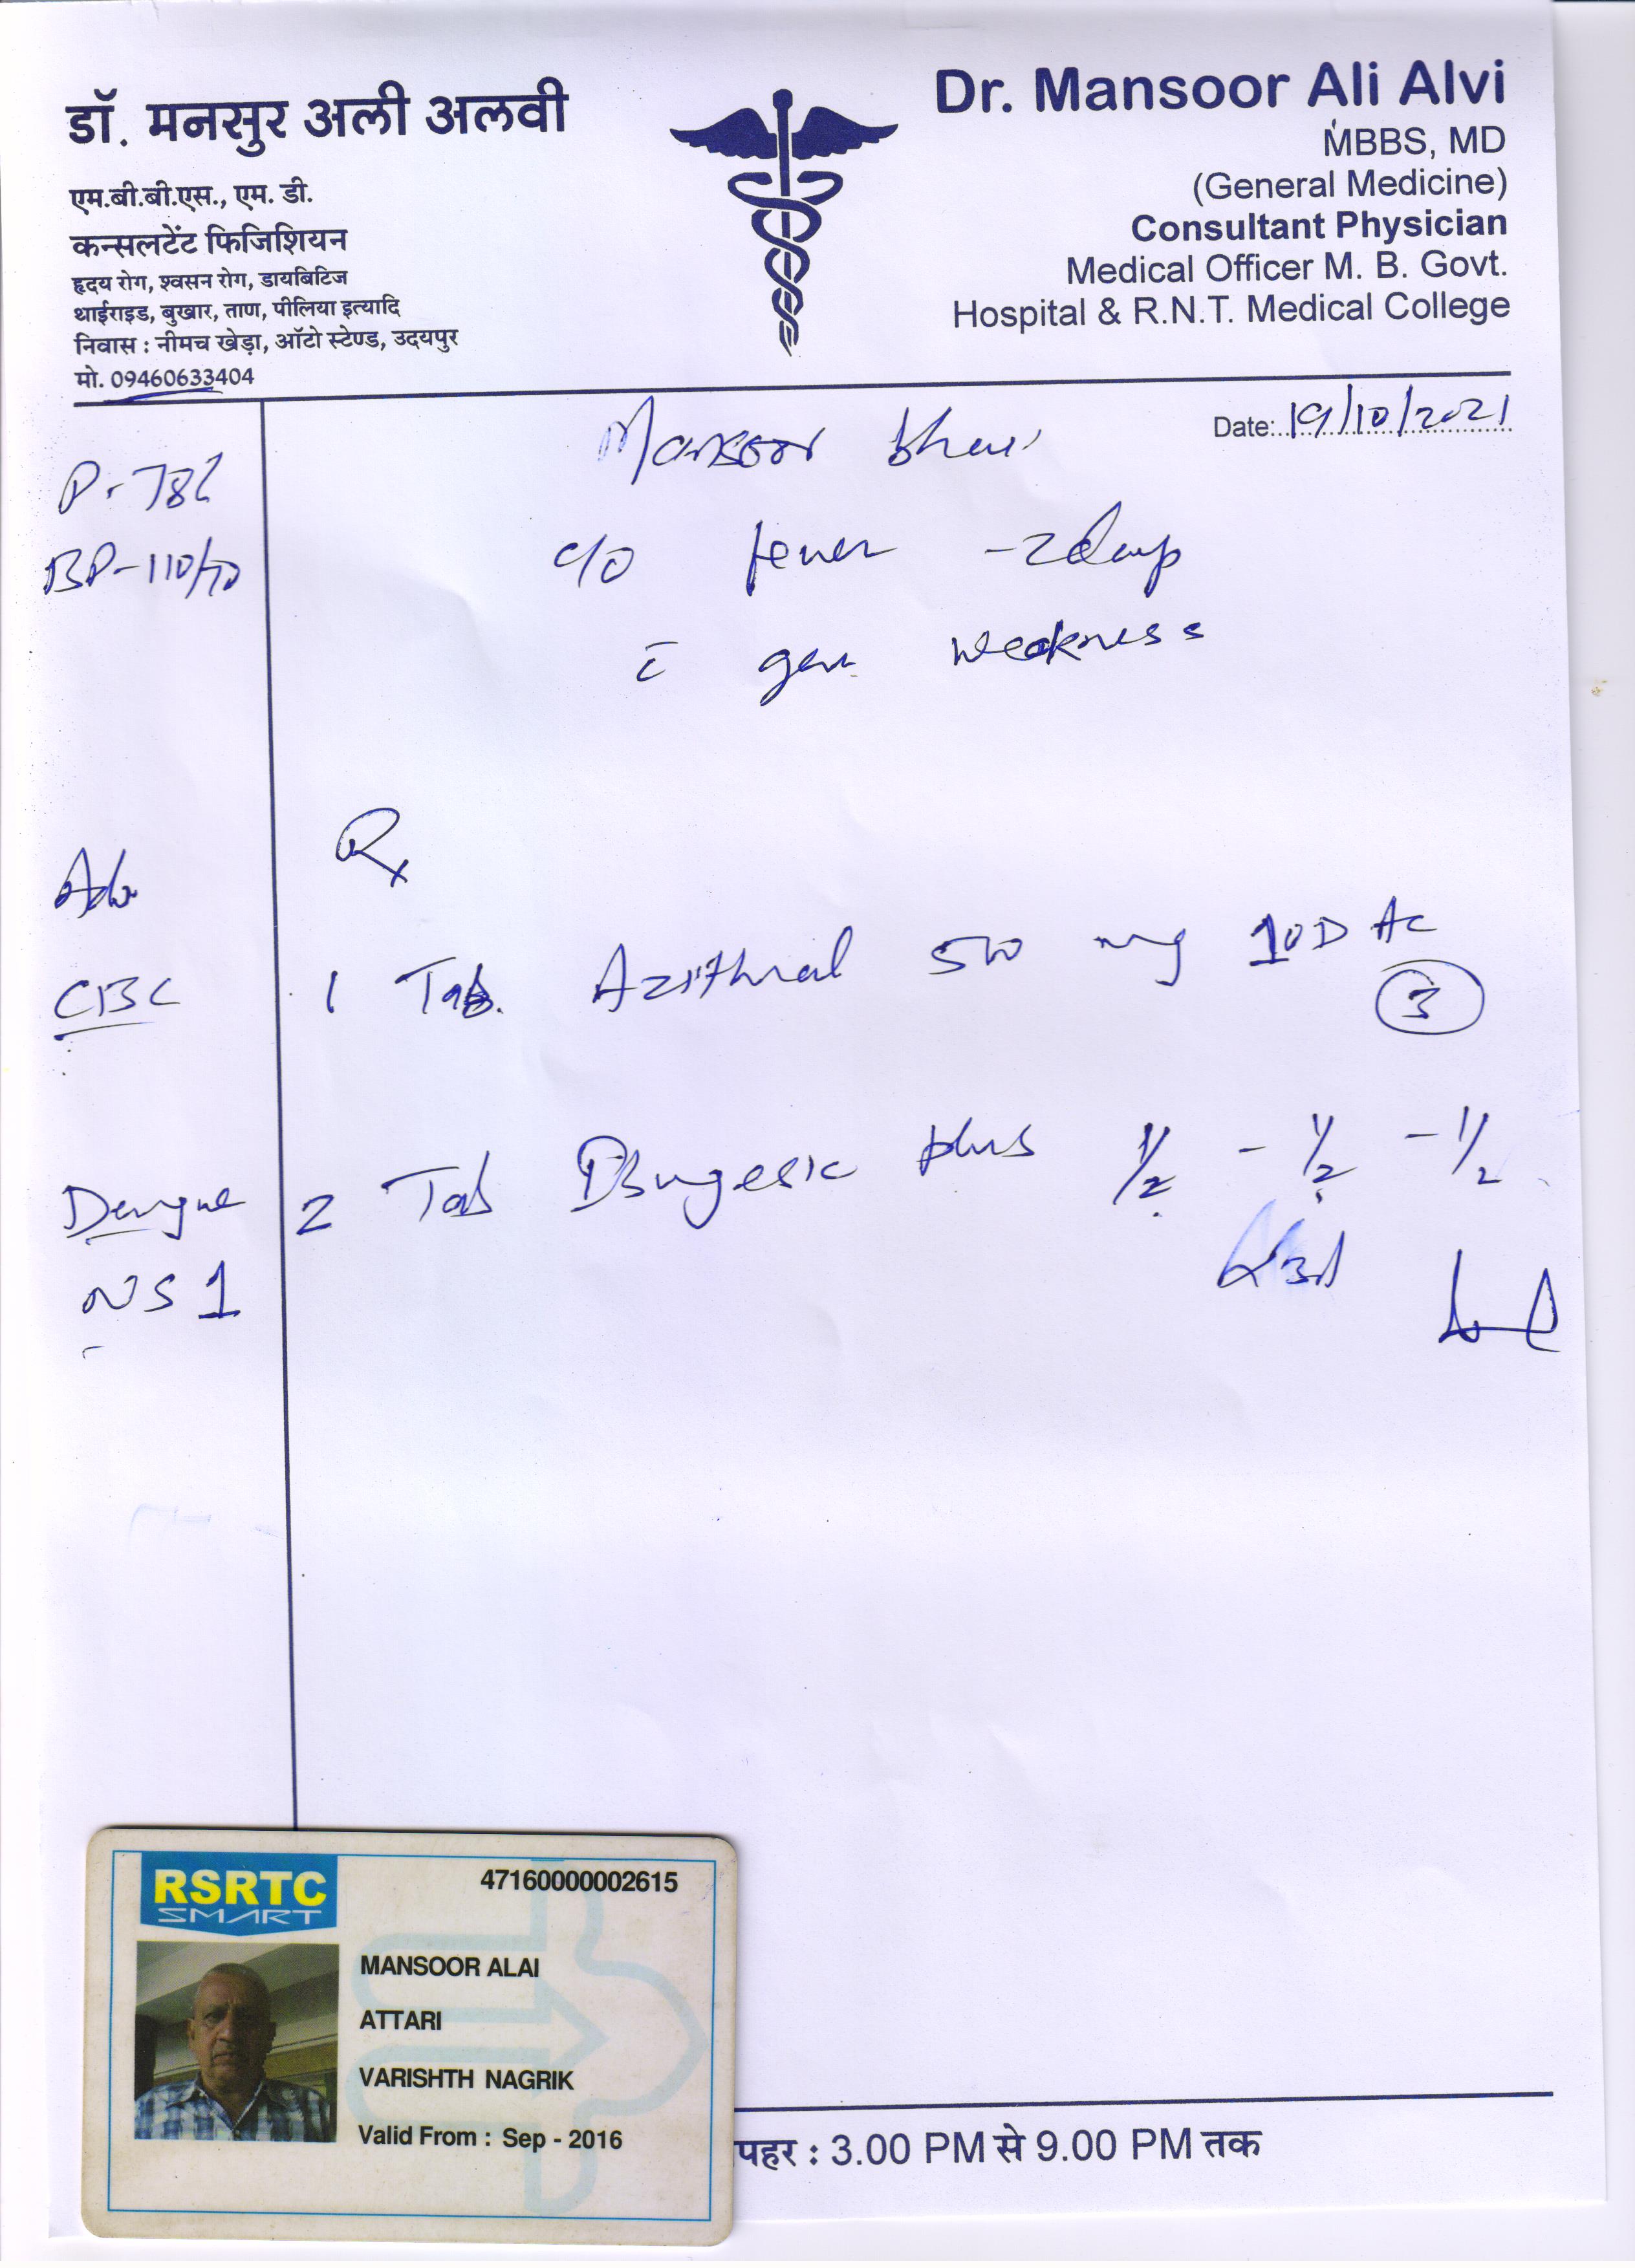 डॉ. मनसुर अली अलवी
एम.बी.बी.एस., एम. डी.
कन्सलटेंट फिजिशियन
हृदय रोग, श्वसन रोग, डायबिटिज
थाईराइड, बुखार, ताण, पीलिया इत्यादि
निवास : नीमच खेड़ा, ऑटो स्टेण्ड, उदयपुर
मो. 09460633404
Dr. Mansoor Ali Alvi
MBBS, MD
(General Medicine)
Consultant Physician
Medical Officer M. B. Govt.
Hospital & R.N.T. Medical College
Date: 19/10/2021
Mansoor bhai
BP-110/70
c/o fever - 2 days
c̄ gen. weakness
Rx
Adv
CBC
1 Tab. Azithral 500 mg 10D AC
3
2 Tab Ibugesic plus 1/2 - 1/2 - 1/2
Dengue
NS1
RSRTC
SMART
47160000002615
MANSOOR ALAI
ATTARI
VARISHTH NAGRIK
Valid From : Sep - 2016
पहर : 3.00 PM से 9.00 PM तक